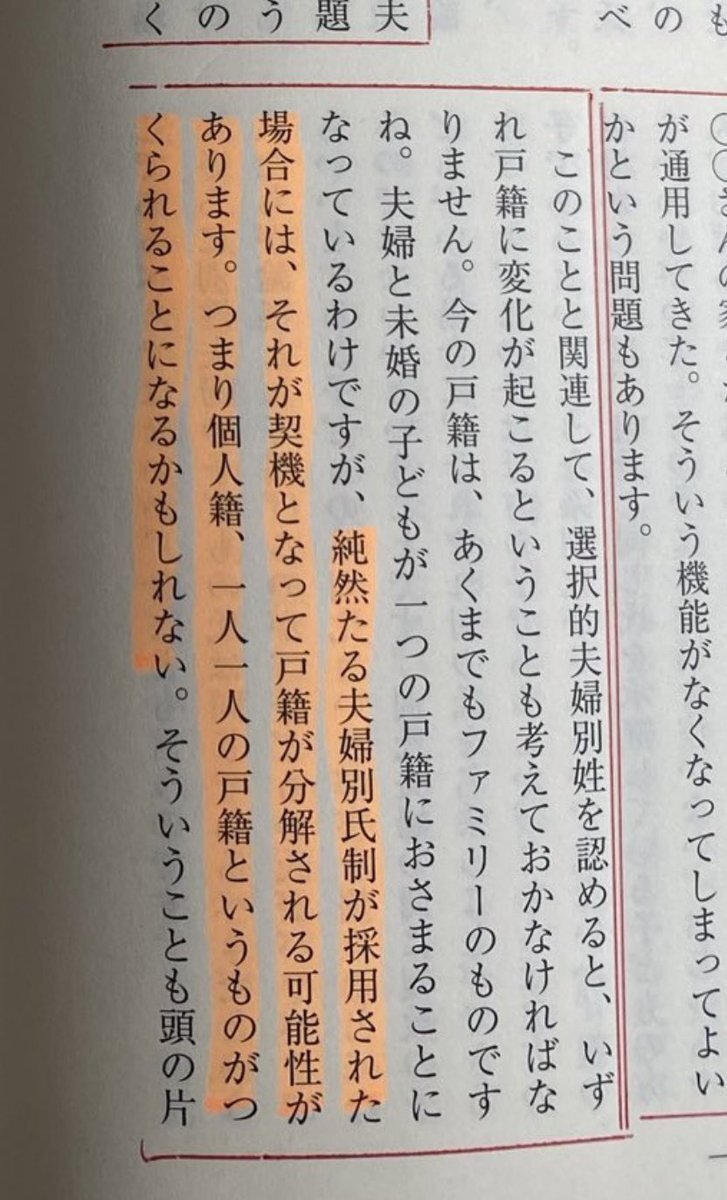 も
の
べ
夫
題
う
の
く
が通用してきた。そういう機能がなくなってしまってよい
かという問題もあります。
このことと関連して、選択的夫婦別姓を認めると、いず
れ戸籍に変化が起こるということも考えておかなければな
りません。今の戸籍は、あくまでもファミリーのものです
ね。夫婦と未婚の子どもが一つの戸籍におさまることに
なっているわけですが、純然たる夫婦別氏制が採用された
場合には、それが契機となって戸籍が分解される可能性が
あります。つまり個人籍、一人一人の戸籍というものがつ
くられることになるかもしれない。そういうことも頭の片